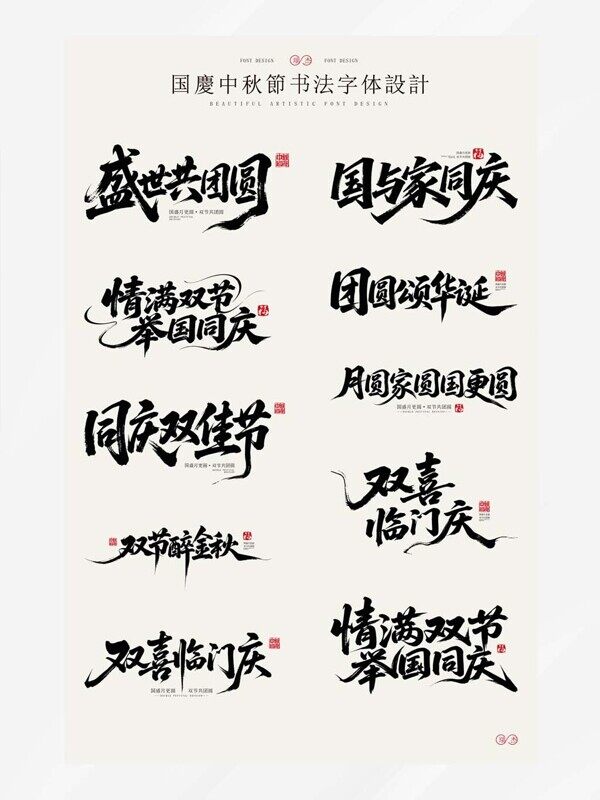 FONT DESIGN
FONT DESIGN
国慶中秋節书法字体設計
BEAUTIFUL ARTISTIC FONT DESIGN
盛世共团圆
国盛月更圆·双节共团圆
情满双节
举国同庆
福
同庆双佳节
国盛月更圆·双节共团圆
双节醉金秋
福
双喜临门庆
国盛月更圆 双节共团圆
国与家同庆
福
团圆颂华诞
月圆家圆国更圆
国盛月更圆·双节共团圆
双喜
临门庆
情满双节
举国同庆
福